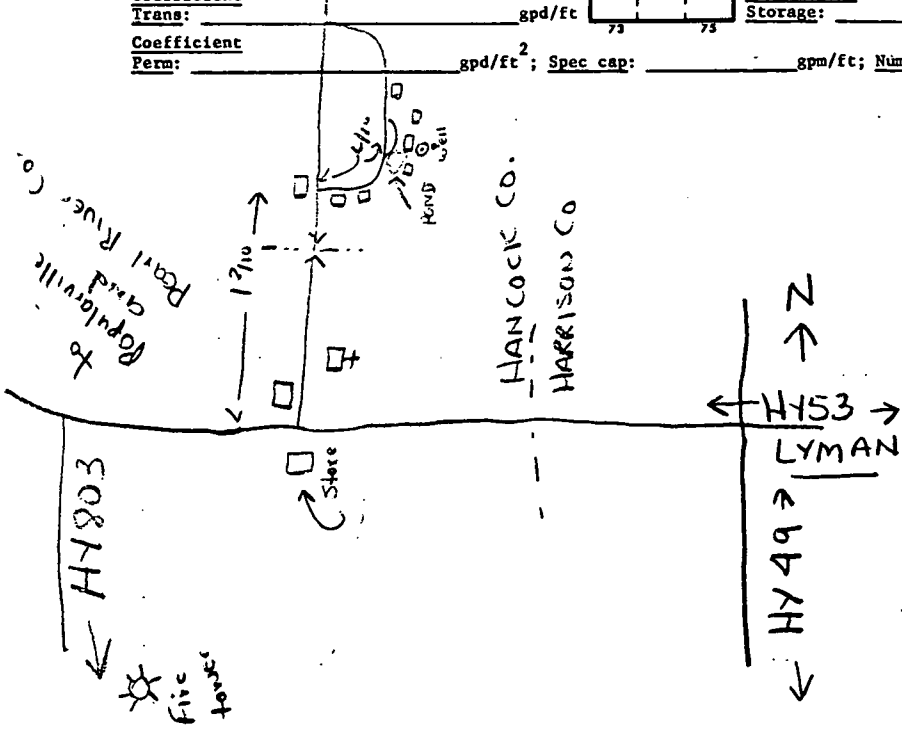 Trans: gpd/ft
73 75
Storage:
Coefficient
Perm: gpd/ft²; Spec cap: gpm/ft; Num
Well
POND
1 2/10
to
Poplarville
and
Pearl River Co.
HANCOCK CO.
HARRISON CO
N
HY53
LYMAN
HY 49
HY 803
Store
Fire
tower